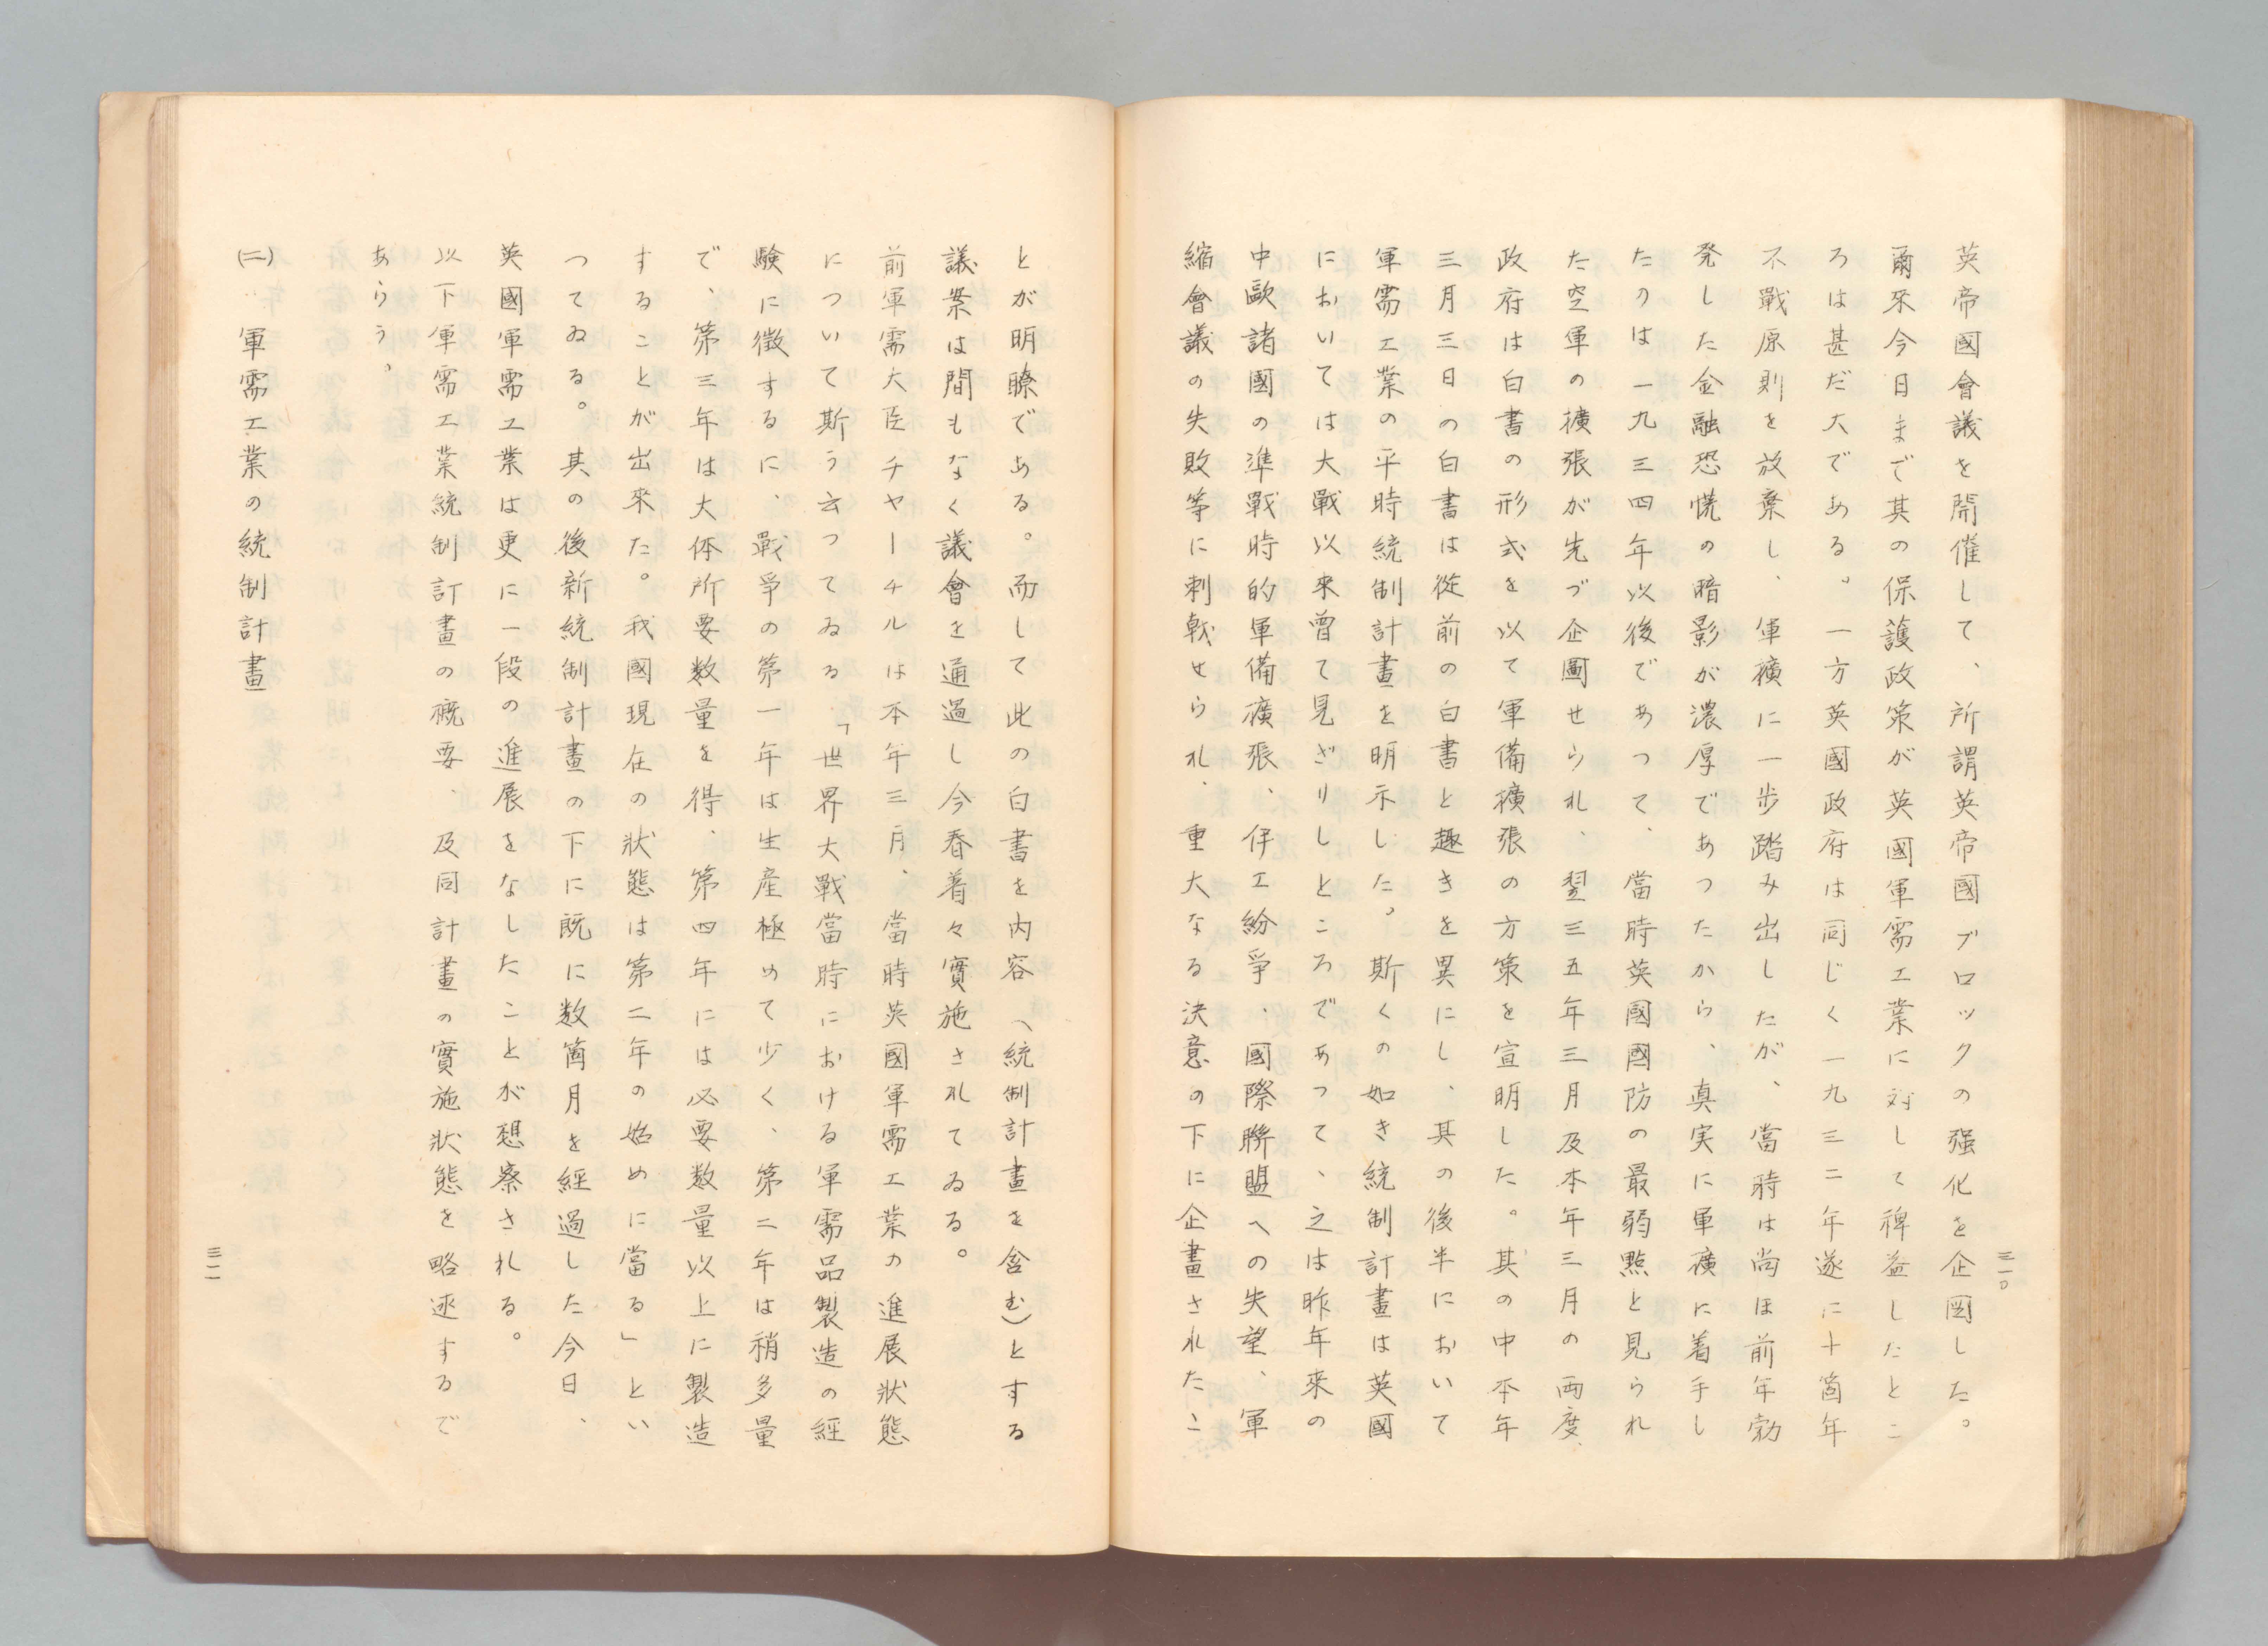 三一〇
英帝國會議を開催して、所謂英帝國ブロックの强化を企図した。
爾来今日まで其の保護政策が英國軍需工業に対して裨益したとこ
ろは甚だ大である。一方英國政府は同じく一九三二年遂に十箇年
不戰原則を放棄し、軍擴に一歩踏み出したが、當時は尚ほ前年勃
発した金融恐慌の暗影が濃厚であつたから、真実に軍擴に着手し
たのは一九三四年以後であつて、當時英國國防の最弱點と見られ
た空軍の擴張が先づ企圖せられ、翌三五年三月及本年三月の両度、
政府は白書の形式を以て軍備擴張の方策を宣明した。其の中本年
三月三日の白書は從前の白書と趣きを異にし、其の後半において
軍需工業の平時統制計畫を明示した。斯くの如き統制計畫は英國
において は大戰以來曾て見ざりしところであつて、之は昨年来の
中歐諸國の準戰時的軍備擴張、伊エ紛爭、國際聯盟への失望、軍
縮會議の失敗等に刺戟せられ、重大なる決意の下に企畫されたこ
とが明瞭である。而して此の白書を内容（統制計畫を含む）とする
議案は間もなく議會を通過し今春着々實施されてゐる。
前軍需大臣チヤーチルは本年三月、當時英國軍需工業の進展狀態
について斯う云つてゐる「世界大戰當時における軍需品製造の經
験に徴するに、戰爭の第一年は生産極めて少く、第二年は稍多量
で、第三年は大体所要数量を得、第四年には必要数量以上に製造
することが出來た。我國現在の狀態は第二年の始めに當る」とい
つてゐる。其の後新統制計畫の下に既に数箇月を經過した今日、
英國軍需工業は更に一段の進展をなしたことが想察される。
以下軍需工業統制訂畫の概要、及同計畫の實施狀態を略逑するで
あらう。
(二) 軍需工業の統制計畫
三一一